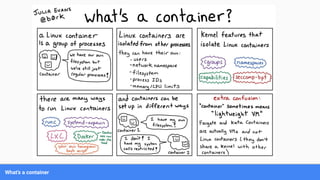 JULIA EVANS
@b0rk
what's a container?
a Linux container
is a group of processes
we have our own
filesystem but
we're still just
regular processes!
container
Linux containers are
isolated from other processes
they can have their own:
- users
- network namespace
- filesystem
- process IDs
- memory/CPU limits
Kernel features that
isolate Linux containers
cgroups
namespaces
capabilities
seccomp-bpf
there are many ways
to run Linux containers
runc
systemd-nspawn
LXC
Docker
your own homegrown
bash script
and containers can be
set up in different ways
I have my own
filesystem!
container 1
I don't! I
have my system
calls restricted!
container 2
extra confusion:
"container" sometimes means
"lightweight VM"
Fargate and Kata Containers
are actually VMs and not
Linux containers (they don't
share a kernel with other
containers)
What's a container